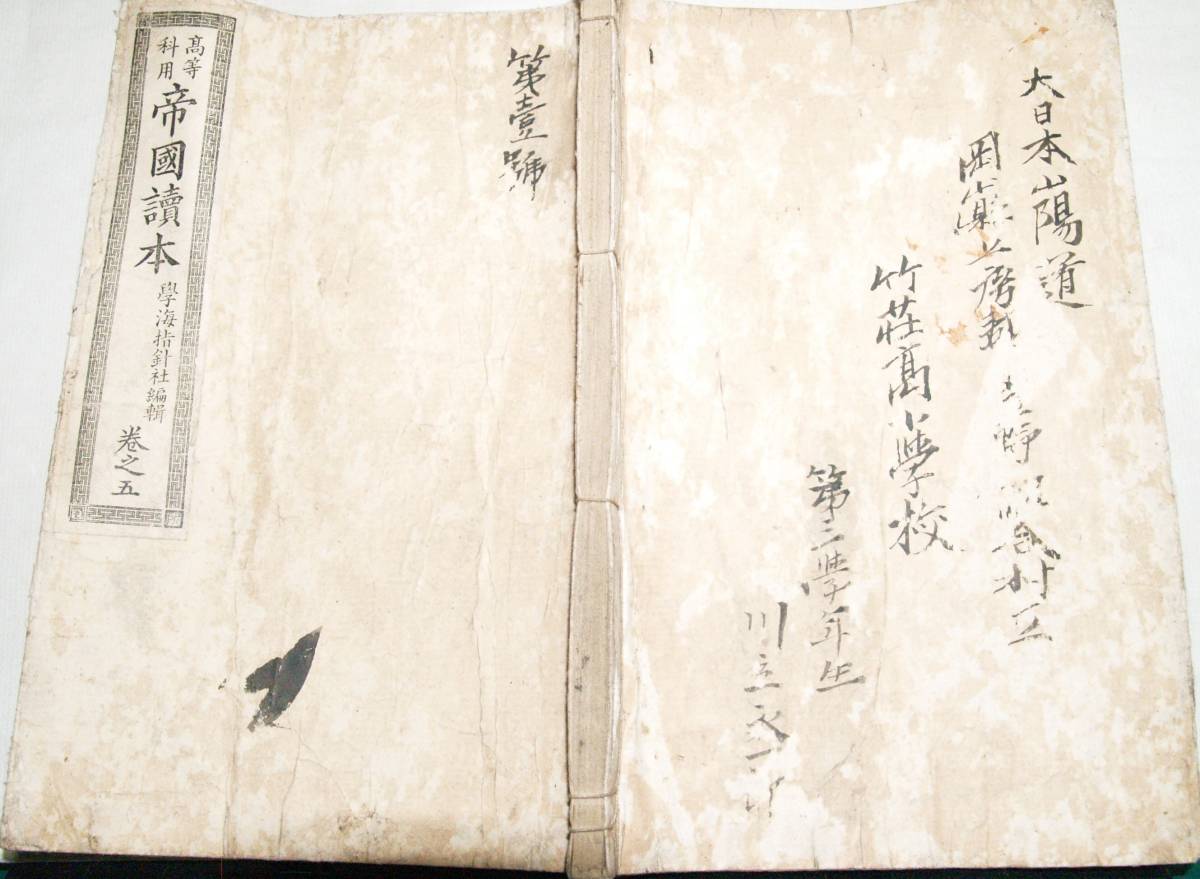 大日本山陽道
岡縣上房郡
村立
竹莊高小學校
第三學年生
川立
第壹號
高等
科用
帝國讀本
學海指針社編輯
卷之五